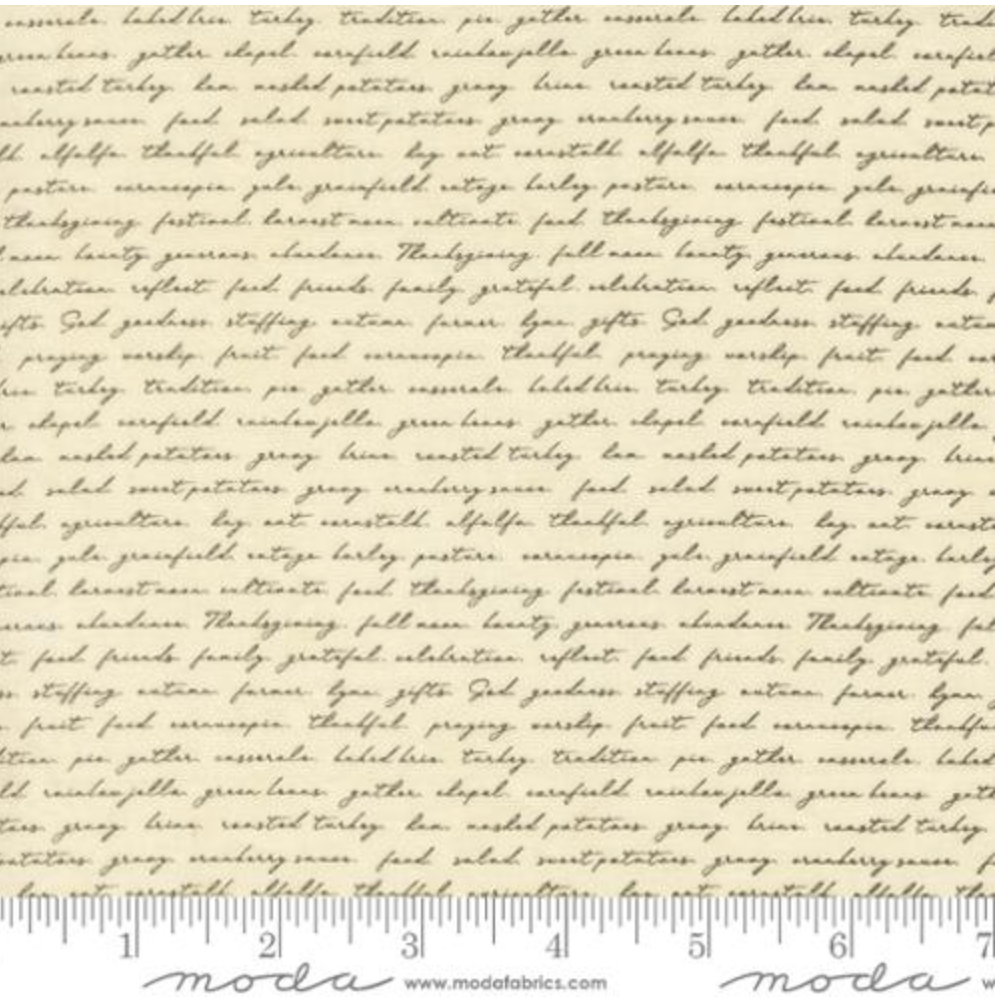 casserole baked brie turkey tradition pie gather casserole baked brie turkey
green beans gather chapel cornfield rainbow jello green beans gather chapel
roasted turkey ham mashed potatoes gravy brine roasted turkey ham mashed
cranberry sauce food salad sweet potatoes gravy cranberry sauce food salad
alfalfa thankful agriculture hay oat cornstalk alfalfa thankful agriculture
pasture cornucopia yale grainfield barley pasture cornucopia yale
thanksgiving festival harvest moon cultivate food thanksgiving festival harvest moon
moon bounty generous abundance Thanksgiving full moon bounty generous abundance
celebration reflect food friends family grateful celebration reflect food friends
gifts God goodness stuffing autumn farmer hymn gifts God goodness stuffing
praying worship fruit food cornucopia thankful praying worship fruit food
turkey tradition pie gather casserole baked brie turkey tradition pie gather
chapel cornfield rainbow jello green beans gather chapel cornfield rainbow jello
ham mashed potatoes gravy brine roasted turkey ham mashed potatoes gravy brine
salad sweet potatoes gravy cranberry sauce food salad sweet potatoes gravy
agriculture hay oat cornstalk alfalfa thankful agriculture hay oat
yale grainfield barley pasture cornucopia yale grainfield barley
harvest moon cultivate food thanksgiving festival harvest moon cultivate food
abundance Thanksgiving full moon bounty generous abundance Thanksgiving
food friends family grateful celebration reflect food friends family grateful
stuffing autumn farmer hymn gifts God goodness stuffing autumn farmer hymn
fruit food cornucopia thankful praying worship fruit food cornucopia
pie gather casserole baked brie turkey tradition pie gather casserole
rainbow jello green beans gather chapel cornfield rainbow jello green beans
gravy brine roasted turkey ham mashed potatoes gravy brine roasted turkey
gravy cranberry sauce food salad sweet potatoes gravy cranberry sauce
hay oat cornstalk alfalfa thankful agriculture hay oat cornstalk alfalfa
1 2 3 4 5 6 7
moda www.modafabrics.com moda